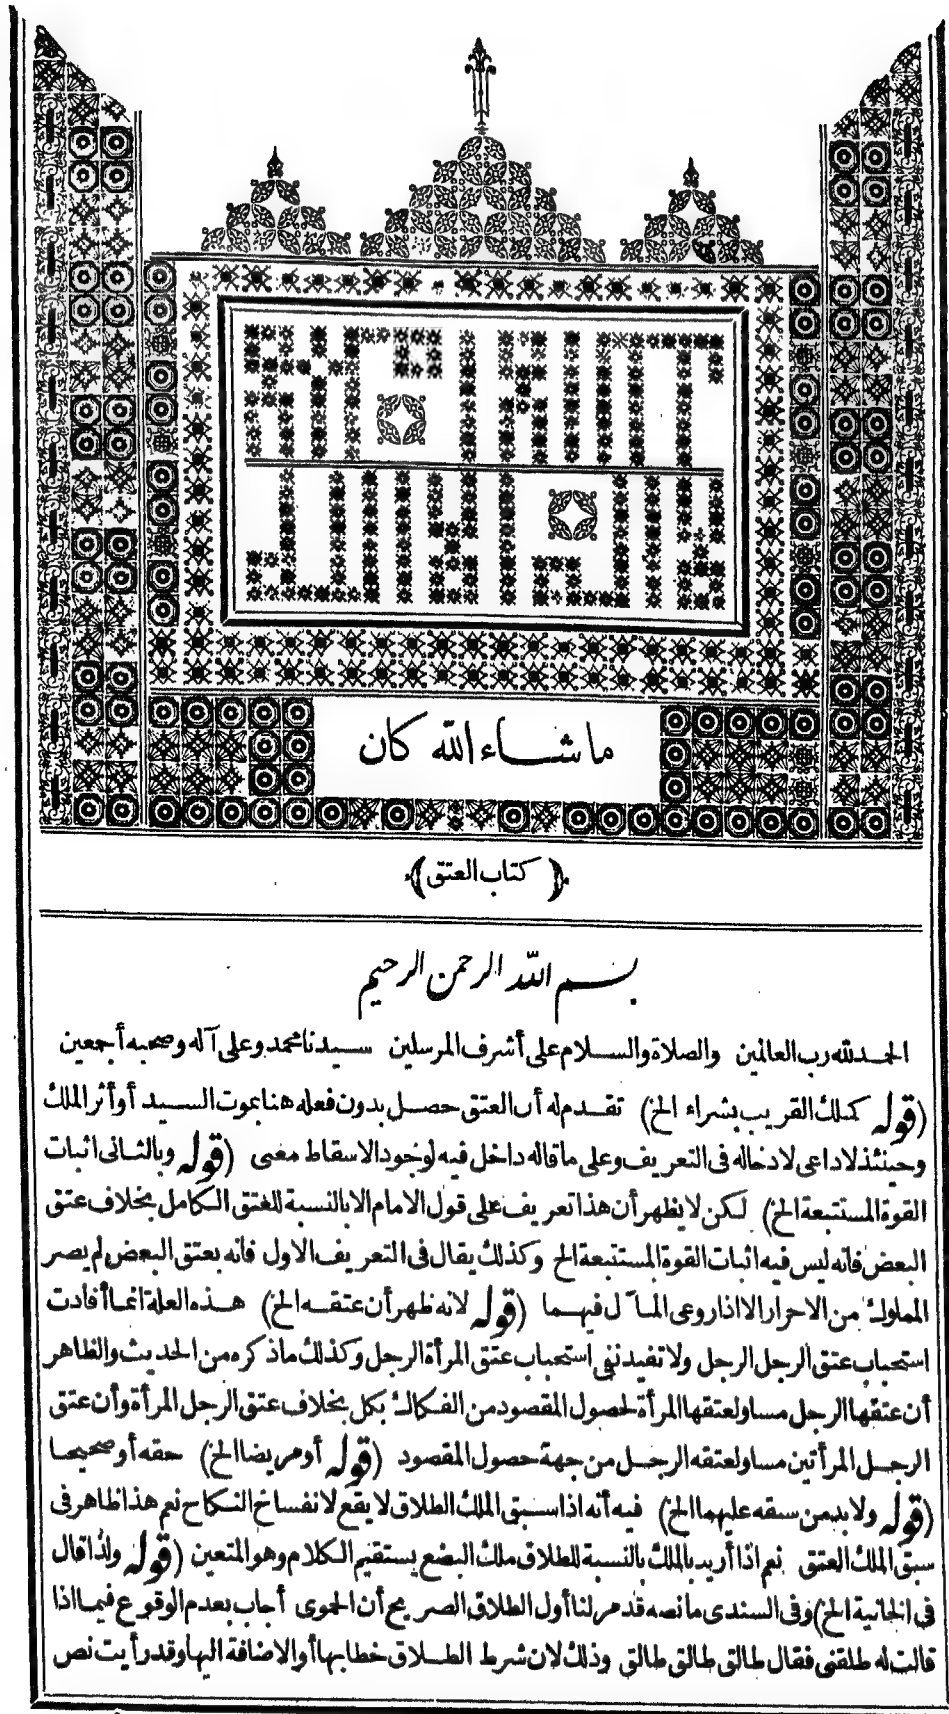 ما شاء الله كان
﴿كتاب العتق﴾
بسم الله الرحمن الرحيم
الحمد لله رب العالمين والصلاة والسلام على أشرف المرسلين سيدنا محمد وعلى آله وصحبه أجمعين
(قوله كملك القريب بشراء الخ) تقدم له أن العتق حصل بدون فعله هنا بموت السيد أو أثر الملك
وحينئذ لا داعى لادخاله فى التعريف وعلى ما قاله داخل فيه لوجود الاسقاط معنى (قوله وبالثانى اثبات
القوة المستتبعة الخ) لكن لا يظهر أن هذا تعريف على قول الامام الا بالنسبة للعتق الكامل بخلاف عتق
البعض فانه ليس فيه اثبات القوة المستتبعة الخ وكذلك يقال فى التعريف الاول فانه بعتق البعض لم يصر
المملوك من الاحرار الا اذا روعى المآل فيهما (قوله لانه ظهر أن عتقه الخ) هذه العلة انما أفادت
استحباب عتق الرجل الرجل ولا تفيد نفى استحباب عتق المرأة الرجل وكذلك ما ذكره من الحديث والظاهر
أن عتقها الرجل مساو لعتقها المرأة لحصول المقصود من الفكاك بكل بخلاف عتق الرجل المرأة وأن عتق
الرجل المرأتين مساو لعتقه الرجل من جهة حصول المقصود (قوله أو مريضا الخ) حقه أو صحيحا
(قوله ولا بد من سبقه عليهما الخ) فيه أنه اذا سبق الملك الطلاق لا يقع لانفساخ النكاح نعم هذا ظاهر فى
سبق الملك العتق نعم اذا أريد بالملك بالنسبة للطلاق ملك البضع يستقيم الكلام وهو المتعين (قوله ولذا قال
فى الخانية الخ) وفى السندى ما نصه قد مر لنا أول الطلاق الصريح أن الحموى أجاب بعدم الوقوع فيما اذا
قالت له طلقنى فقال طالق طالق طالق وذلك لان شرط الطلاق خطابها أو الاضافة اليها وقد رأيت نص